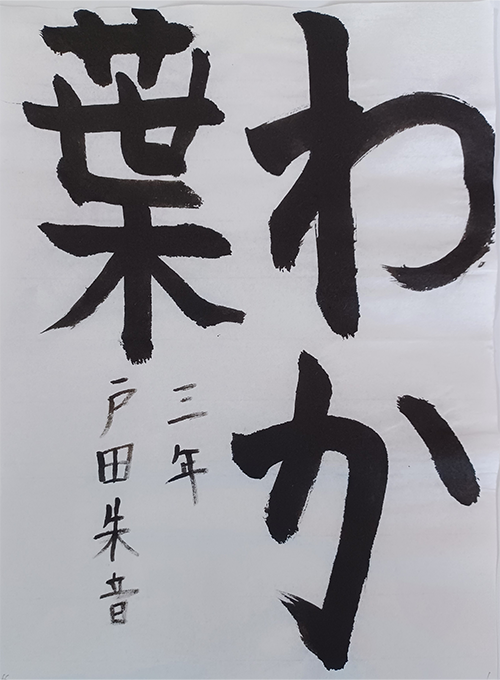 わか
葉
三年
戸田朱音